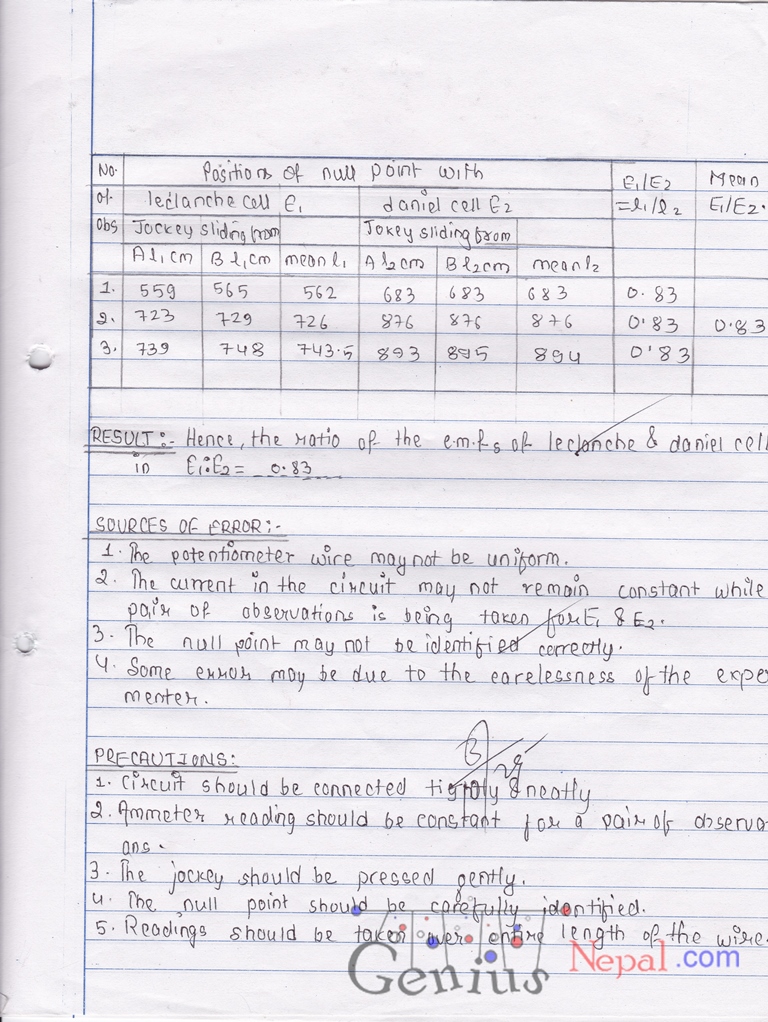 No. Positions of null point with E1/E2 Mean
of. leclanche cell E1 daniel cell E2 =l1/l2 E1/E2.
Obs Jockey sliding from Jokey sliding from
A l1 cm B l1 cm mean l1 A l2 cm B l2 cm mean l2
1. 559 565 562 683 683 683 0.83
2. 723 729 726 876 876 876 0.83 0.83
3. 739 748 743.5 893 895 894 0.83
RESULT:- Hence, the ratio of the e.m.fs of leclanche & daniel cell
in E1:E2 = 0.83
SOURCES OF ERROR:-
1. The potentiometer wire may not be uniform.
2. The current in the circuit may not remain constant while
pair of observations is being taken for E1 & E2.
3. The null point may not be identified correctly.
4. Some error may be due to the carelessness of the expe
menter.
PRECAUTIONS:
1. Circuit should be connected tightly & neatly
2. Ammeter reading should be constant for a pair of observa
ans.
3. The jockey should be pressed gently.
4. The null point should be carefully identified.
5. Readings should be taken over entire length of the wire.
Genius Nepal.com